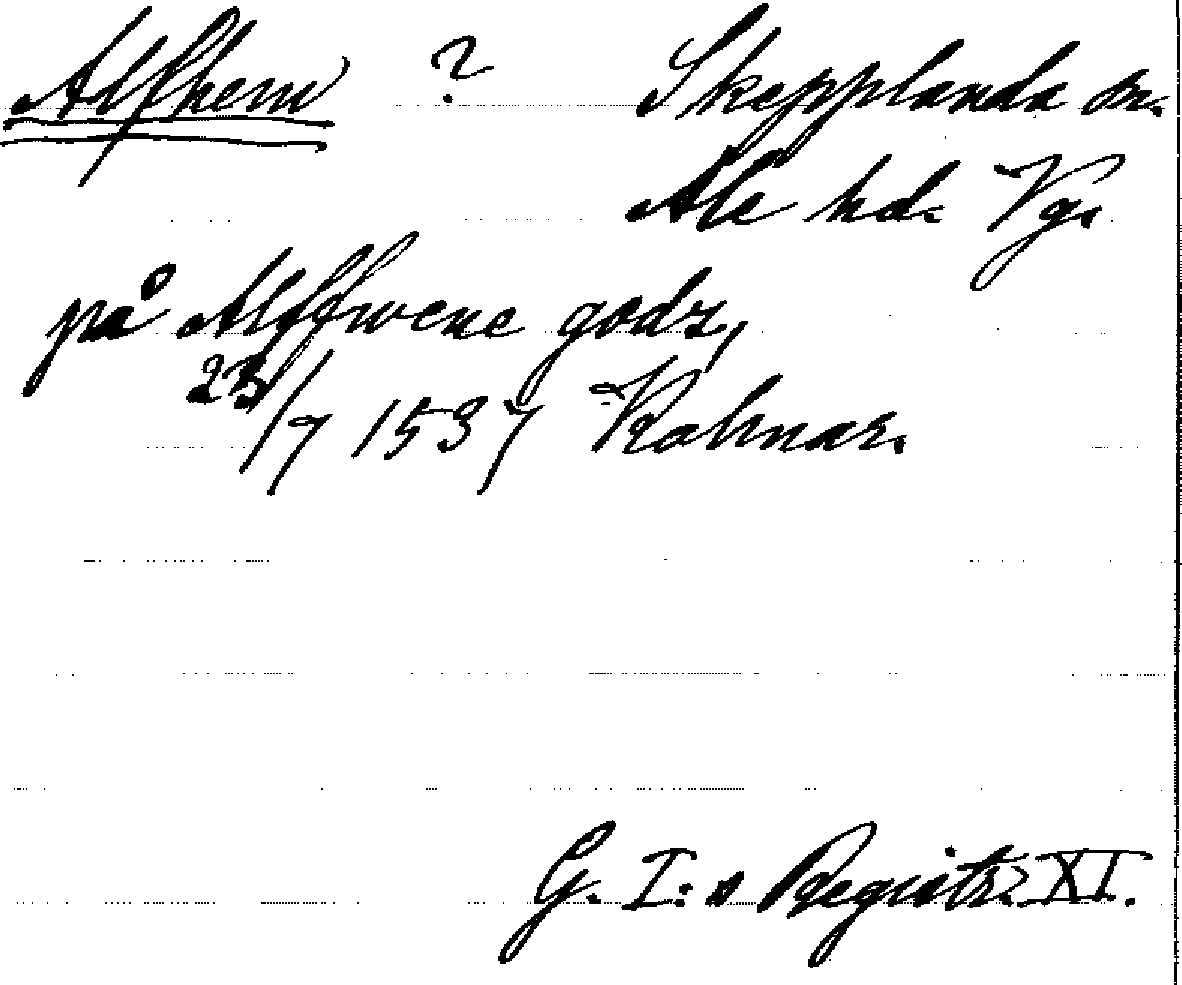 Alfhem ? Skepplanda sn.
Ale hd. Vg.
på Alffwene godz,
23/7 1537 Kalmar.
G. I:s Registr. XI.